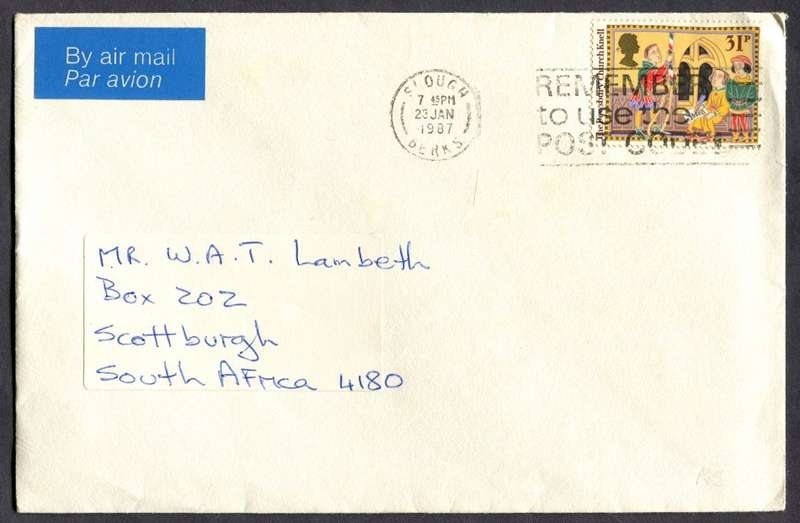 By air mail
Par avion
SLOUGH
7 45PM
23 JAN
1987
BERKS
REMEMBER
to use the
POST CODE
31P
The Hewsbury Church Knell
MR. W.A.T. Lambeth
Box 202
Scottburgh
South Africa 4180